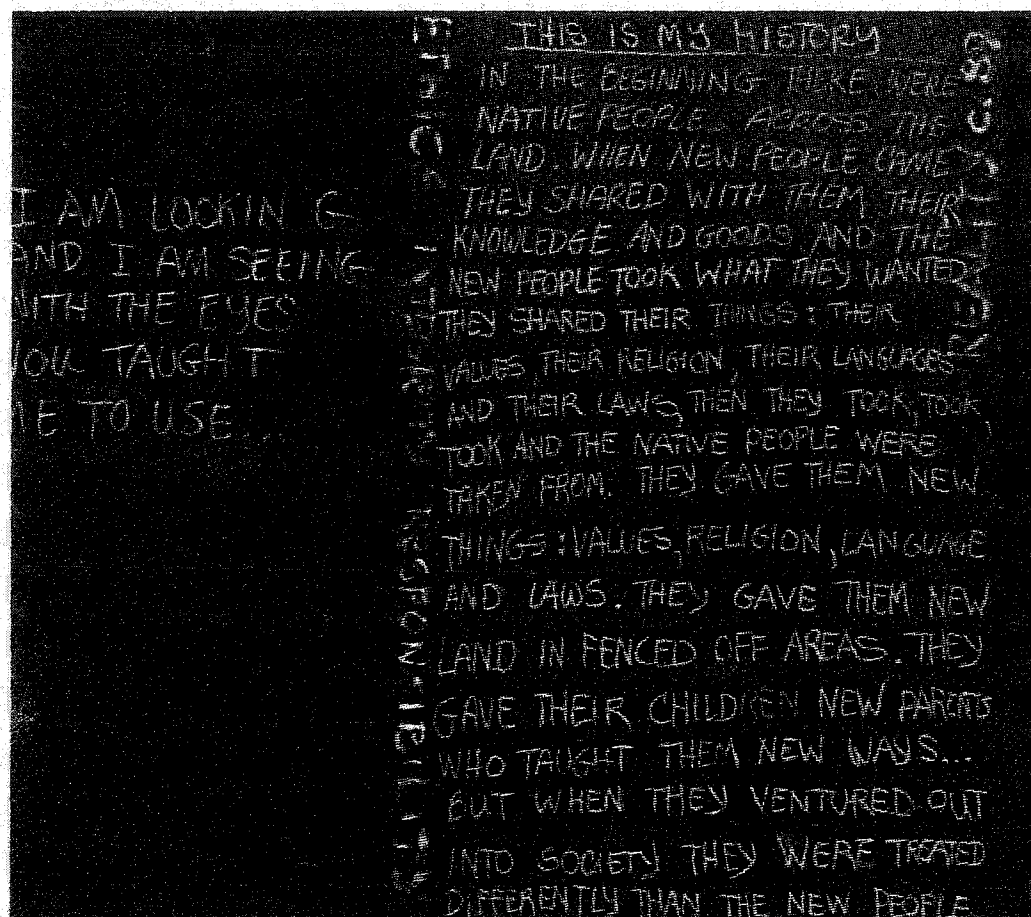 I AM LOOKIN G
AND I AM SEEING
WITH THE EYES
YOU TAUGHT
ME TO USE...
THIS IS MY HISTORY
IN THE BEGINNING THERE WERE
NATIVE PEOPLE ACROSS THE
LAND. WHEN NEW PEOPLE CAME
THEY SHARED WITH THEM THEIR
KNOWLEDGE AND GOODS AND THE
NEW PEOPLE TOOK WHAT THEY WANTED
THEY SHARED THEIR THINGS: THEIR
VALUES, THEIR RELIGION, THEIR LANGUAGES
AND THEIR LAWS, THEN THEY TOOK, TOOK,
TOOK AND THE NATIVE PEOPLE WERE
TAKEN FROM. THEY GAVE THEM NEW
THINGS: VALUES, RELIGION, LANGUAGE
AND LAWS. THEY GAVE THEM NEW
LAND IN FENCED OFF AREAS. THEY
GAVE THEIR CHILDREN NEW PARENTS
WHO TAUGHT THEM NEW WAYS...
BUT WHEN THEY VENTURED OUT
INTO SOCIETY THEY WERE TREATED
DIFFERENTLY THAN THE NEW PEOPLE